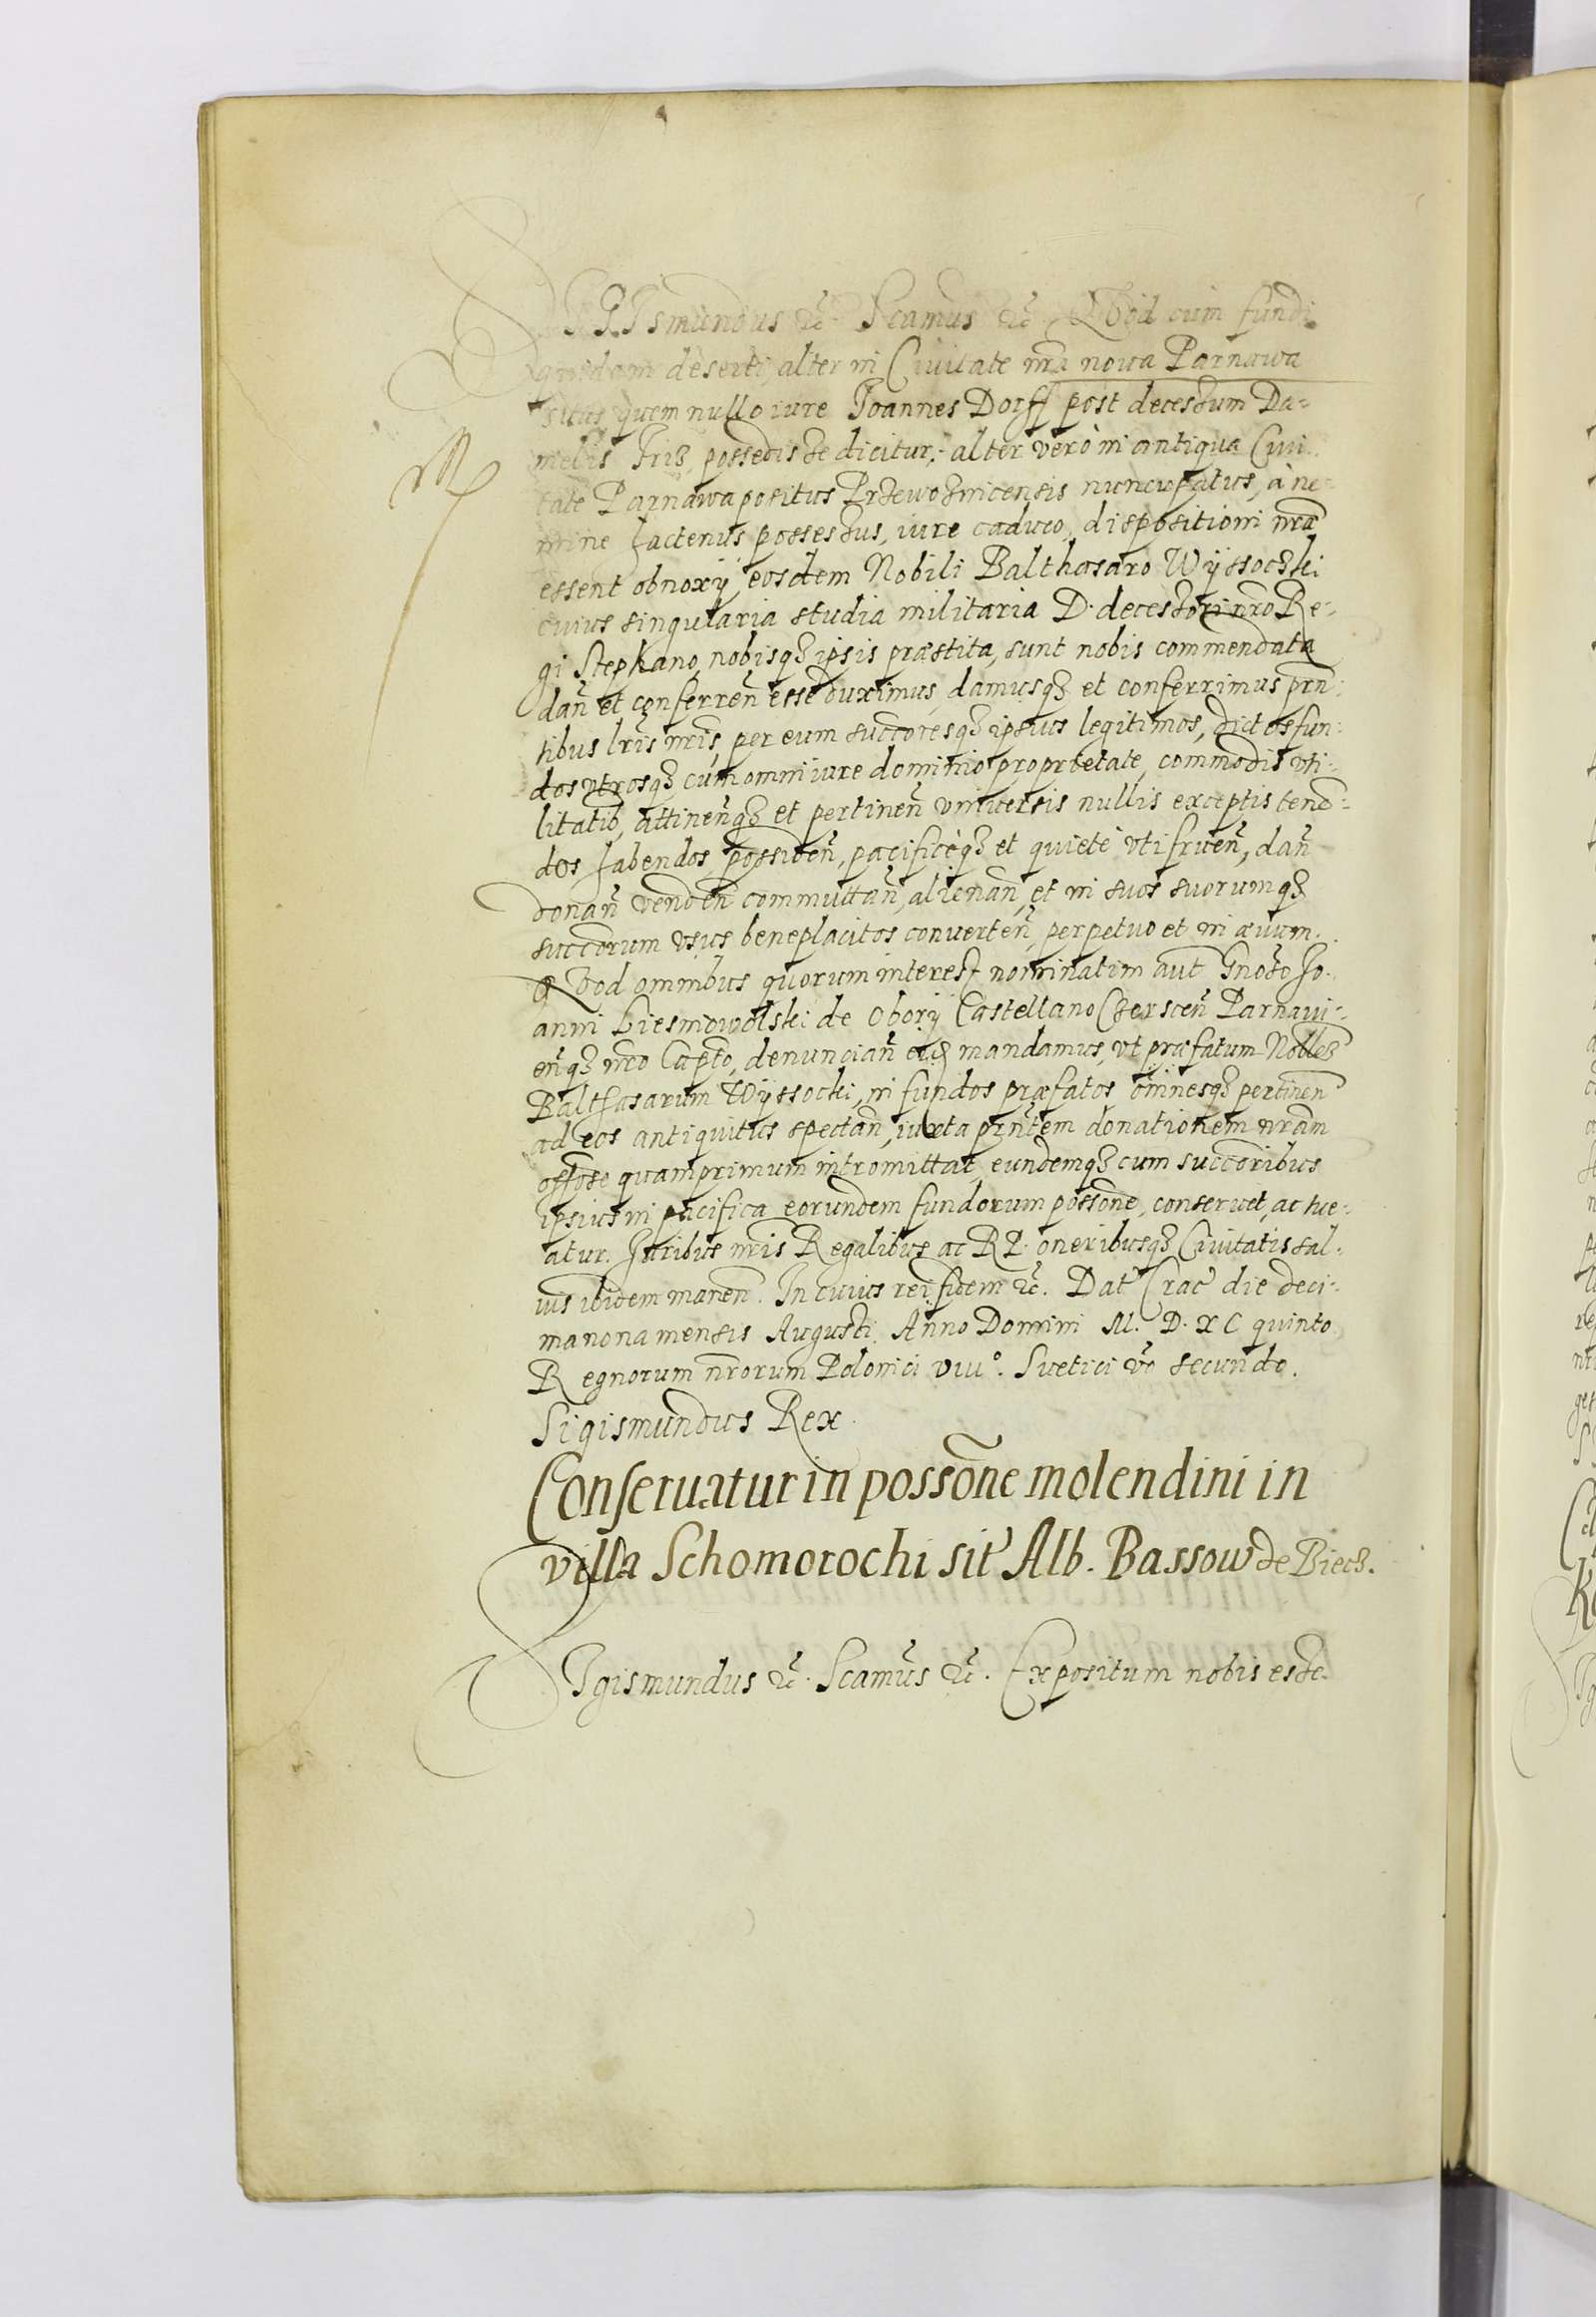 SIGIsmundus &c̃. Scamus &c̃. Qvod cum fundi
quidam deserti, alter in Ciuitate nrã nova Parnawa
situs quem nullo iure Joannes Dorff post decessum Da-
nielis Friz, possedisse dicitur, alter verò in antiqua Ciui-
tate Parnawa positus Przewoznicensis nuncupatus, à ne-
mine hactenus possessus, iure caduco, dispositioni nræ
essent obnoxÿ, eosdem Nobili Balthasaro Wÿssoczki
cuius singularia studia militaria D. decessori nrõ Re-
gi Stephano, nobisqȝ ipsis præstita, sunt nobis commendata
dañ et conferreñ esse duximus, damusqȝ et conferrimus prñ-
tibus lrĩs nrĩs, per eum succoresqȝ ipsius legitimos, dictos fun-
dos vtrosqȝ cum omni iure dominio proprietate, commodis vti-
litatib, attineñqȝ et pertineñ vniuersis nullis exceptis tenẽ-
dos habendos possideñ, pacificèqȝ et quietè vti frueñ, dañ
donañ vendeñ commuttañ, alienañ, et in suos suorumqȝ
succorum vsus beneplacitos conuerteñ, perpetuo et in æuum.
Qvod omnibus quorum interest nominatim aut Gnoso Jo-
anni Liesniowolski de Oborÿ Castellano Czerscen̄ Parnaui-
eñqȝ nrõ Capto, denunciañ eiqȝ mandamus, vt præfatum Nobleȝ
Balthasarum Wÿssocki, in fundos præfatos omnesqȝ pertineñ
ad eos antiquitus spectañ, iuxta prñtem donationem nrãm
offose quamprimum intromittat, eundemqȝ cum succoribus
ipsius in pacifica eorundem fundorum possone, conseruet, ac tue-
atur. Juribus nrĩs Regalibus ac RP. oneribusqȝ Ciuitatis sal-
uis ibidem maneñ. In cuius rei fidem &c̃. Dat Crac die deci-
manona mensis Augusti. Anno Domini M. D. XC quinto
Regnorum nrõrum Polonici viii°. Suetici v̊o secundo.
Sigismundus Rex.
Conseruatur in possõne molendini in
villa Schomorochi sit̃ Alb. Bassow de Biecz.
SIgismundus &c̃. Scamus &c̃. Expositum nobis esse